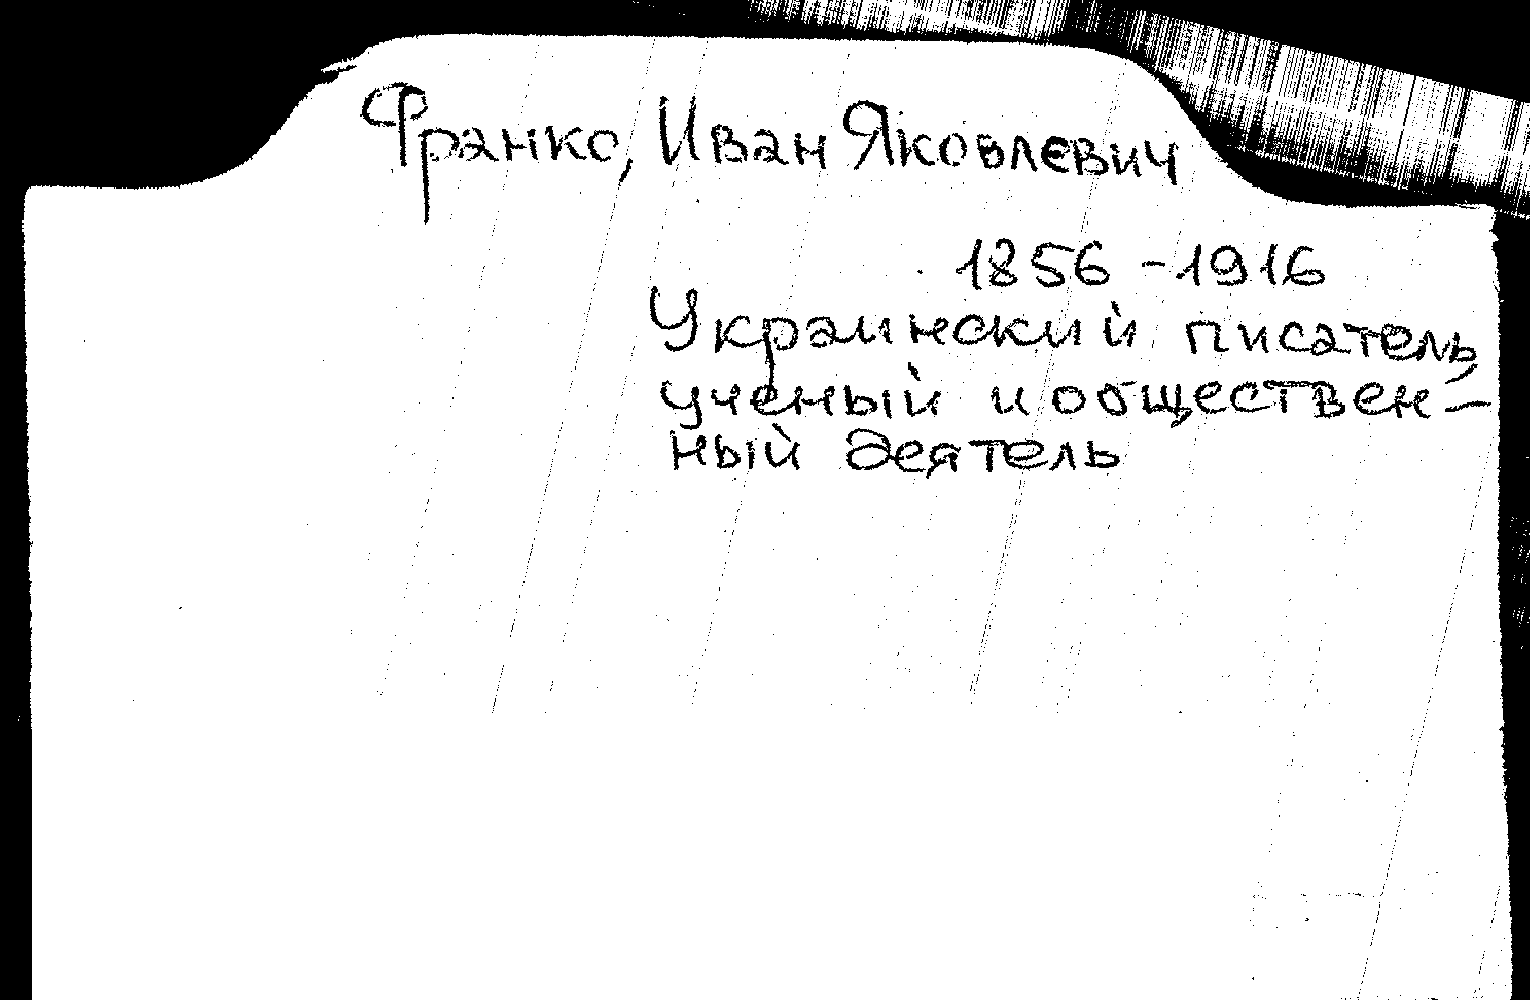 Франко, Иван Яковлевич
1856-1916
Украинский писатель,
ученый и обществен-
ный деятель